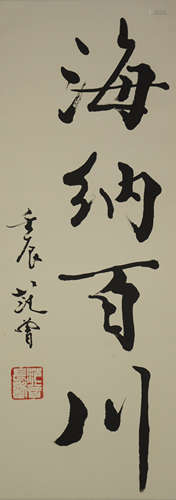 海纳百川
壬辰 范曾